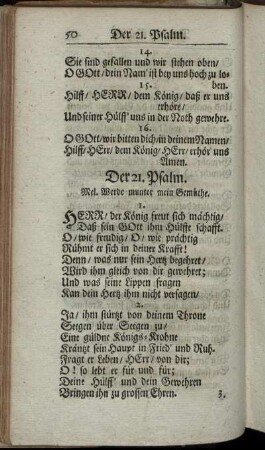 50 Der 21. Psalm.
14.
Sie sind gefallen und wir stehen oben/
O GOtt/ dein Nam' ist bey uns hoch zu lo-
ben.
15.
Hilff/ HERR/ dem König/ daß er uns
erhöre/
Und seiner Hülff' uns in der Noth gewehre.
16.
O GOtt/ wir bitten dich/ in deinem Namen/
Hilff/ HErr/ dem König/ HErr/ erhör' uns
Amen.
Der 21. Psalm.
Mel. Werde munter mein Gemüthe.
1.
HERR/ der König freut sich mächtig/
Daß sein GOtt ihm Hülffe schafft.
O/ wie freudig/ O/ wie prächtig
Rühmt er sich in deiner Krafft!
Denn/ was nur sein Hertz begehret/
Wird ihm gleich von dir gewehret;
Und was seine Lippen fragen
Kan dein Hertz ihm nicht versagen/
2.
Ja/ ihm stürtzt von deinem Throne
Seegen über Seegen zu/
Eine güldne Königs-Krohne
Kräntzt sein Haupt in Fried' und Ruh.
Fragt er Leben/ HErr/ von dir;
O! so lebt er für und für;
Deine Hülff' und dein Gewehren
Bringen ihn zu grossen Ehren.
3.